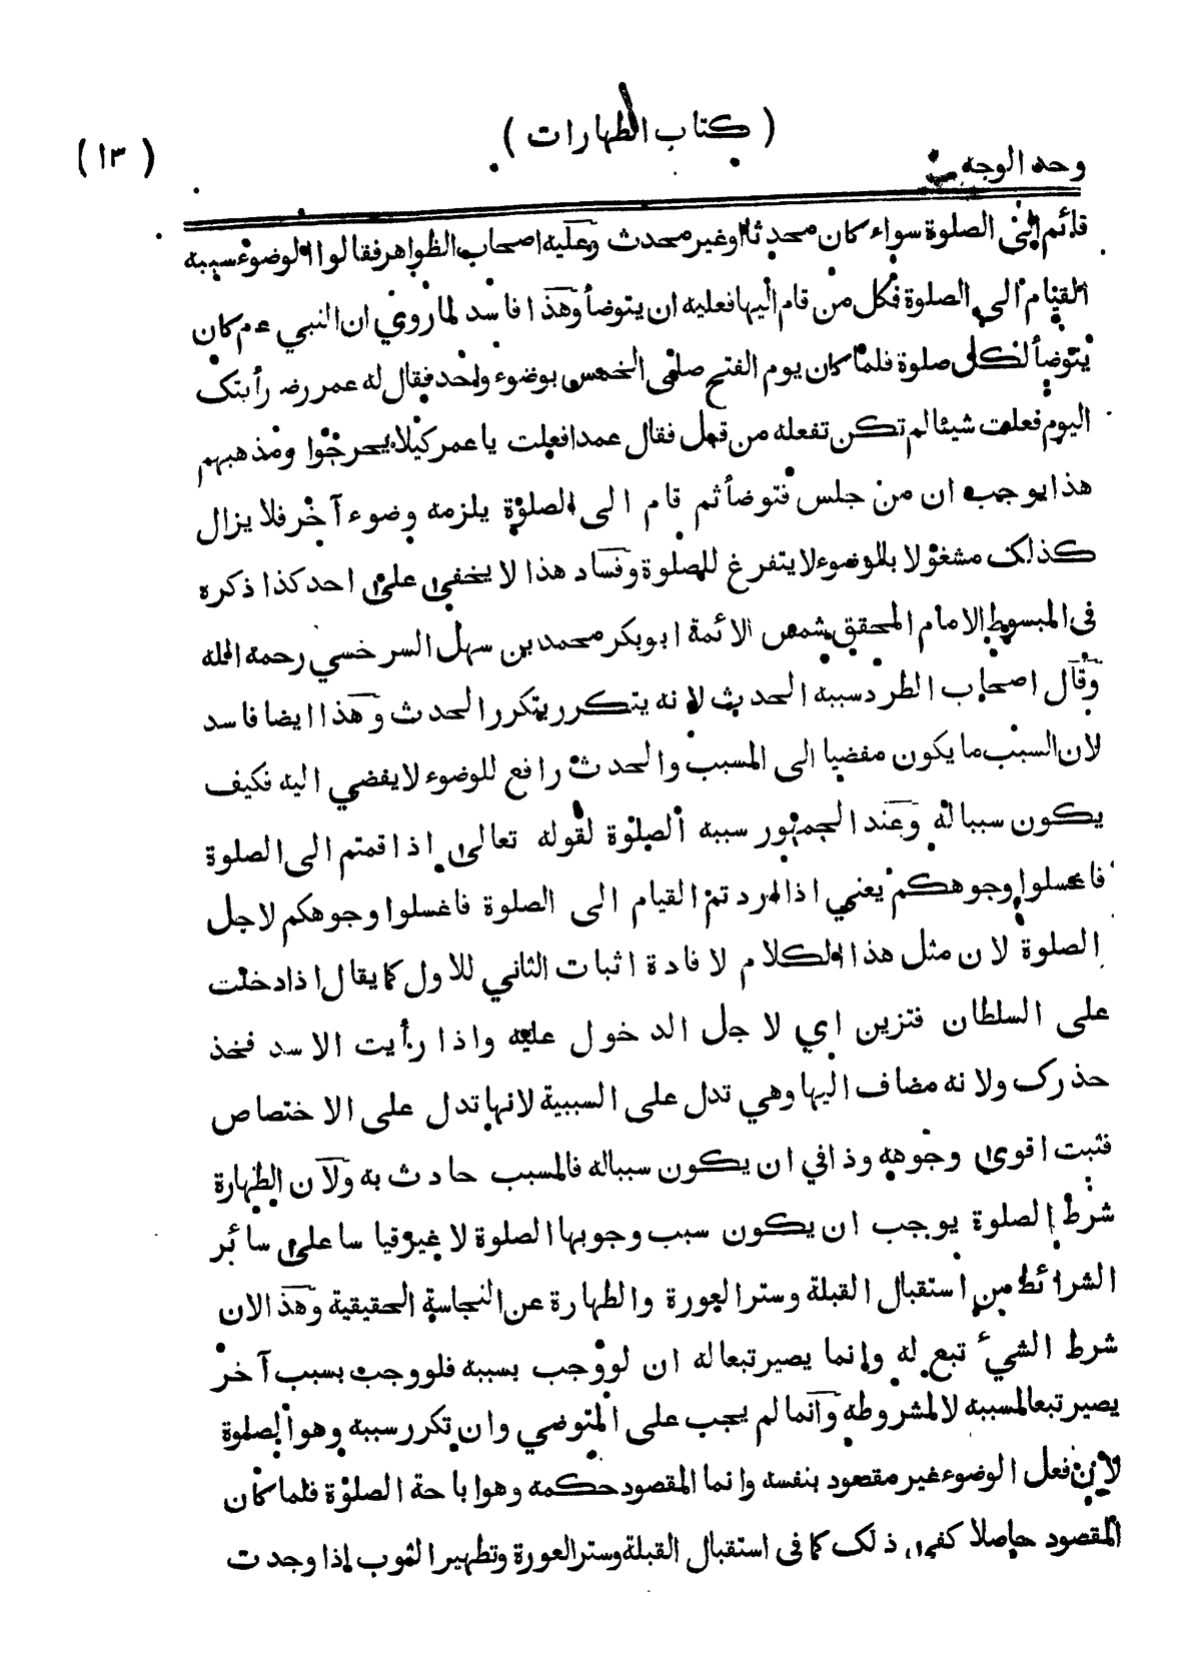 ( كتاب الطهارات )
( ١٣ )
وحد الوجه
قائم الى الصلوة سواء كان محدثا او غير محدث وعليه اصحاب الظواهر فقالوا الوضوء سببه
القيام الى الصلوة فكل من قام اليها فعليه ان يتوضأ وهذا فاسد لما روي ان النبي ءم كان
يتوضأ لكل صلوة فلما كان يوم الفتح صلى الخمس بوضوء واحد فقال له عمر رضـ رأيتك
اليوم فعلت شيئا لم تكن تفعله من قبل فقال عمدا فعلت يا عمر كيلا يحرجوا ومذهبهم
هذا يوجب ان من جلس فتوضأ ثم قام الى الصلوة يلزمه وضوء آخر فلا يزال
كذلك مشغولا بالوضوء لا يتفرغ للصلوة وفساد هذا لا يخفى على احد كذا ذكره
فى المبسوط الامام المحقق شمس الائمة ابوبكر محمد بن سهل السرخسي رحمه الله
وقال اصحاب الطرد سببه الحدث لانه يتكرر بتكرر الحدث وهذا ايضا فاسد
لان السبب ما يكون مفضيا الى المسبب والحدث رافع للوضوء لا يفضي اليه فكيف
يكون سببا له وعند الجمهور سببه الصلوة لقوله تعالى اذا قمتم الى الصلوة
فاغسلوا وجوهكم يعني اذا اردتم القيام الى الصلوة فاغسلوا وجوهكم لاجل
الصلوة لان مثل هذا الكلام لافادة اثبات الثاني للاول كما يقال اذا دخلت
على السلطان فتزين اي لاجل الدخول عليه واذا رأيت الاسد فخذ
حذرك ولانه مضاف اليها وهي تدل على السببية لانها تدل على الاختصاص
فثبت اقوى وجوهه وذا في ان يكون سببا له فالمسبب حادث به ولان الطهارة
شرط الصلوة يوجب ان يكون سبب وجوبها الصلوة لا غير قياسا على سائر
الشرائط من استقبال القبلة وستر العورة والطهارة عن النجاسة الحقيقية وهذا لان
شرط الشيء تبع له وانما يصير تبعا له ان لو وجب بسببه فلو وجب بسبب آخر
يصير تبعا لمسببه لا لمشروطه وانما لم يجب على المتوضي وان تكرر سببه وهو الصلوة
لان فعل الوضوء غير مقصود بنفسه وانما المقصود حكمه وهو اباحة الصلوة فلما كان
المقصود حاصلا كفى ذلك كما فى استقبال القبلة وستر العورة وتطهير الثوب اذا وجدت